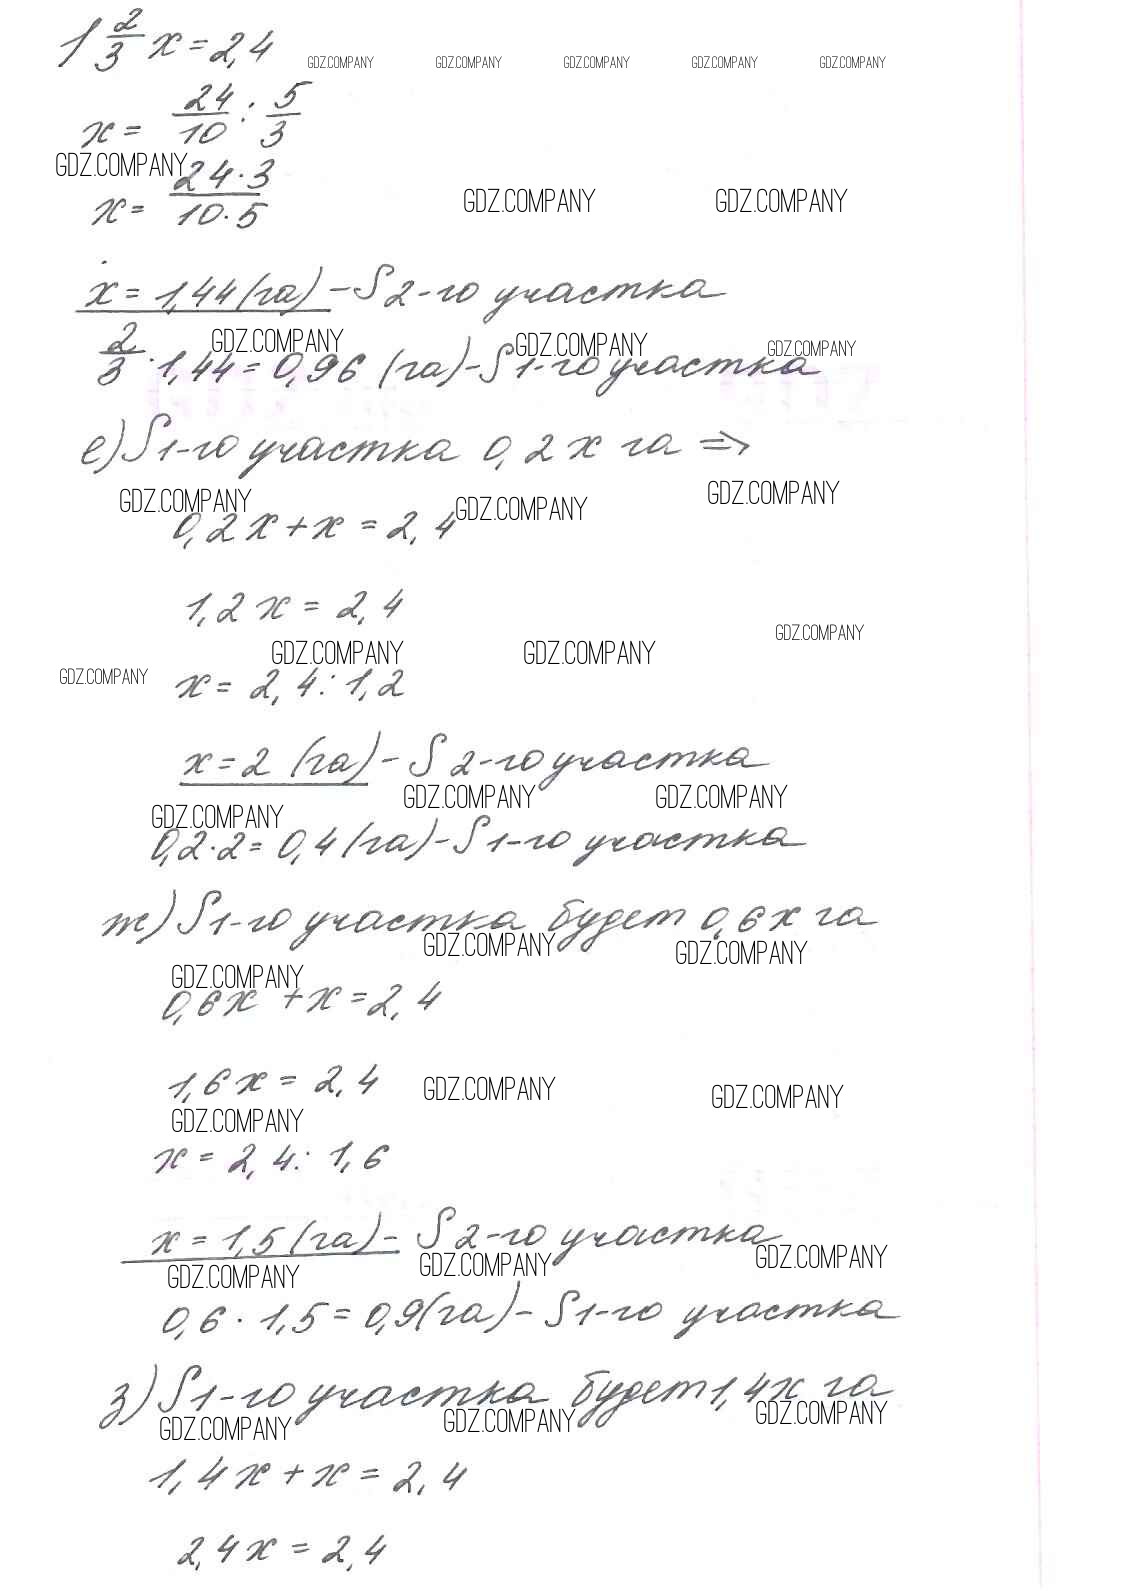 1 2/3 x = 2,4
GDZ.COMPANY GDZ.COMPANY GDZ.COMPANY GDZ.COMPANY GDZ.COMPANY
x = 24/10 : 5/3
GDZ.COMPANY
x = 24·3/10·5
GDZ.COMPANY GDZ.COMPANY
x = 1,44 (га) – S 2-го участка
GDZ.COMPANY GDZ.COMPANY GDZ.COMPANY
2/3 · 1,44 = 0,96 (га) – S 1-го участка
е) S 1-го участка 0,2x га =>
GDZ.COMPANY GDZ.COMPANY GDZ.COMPANY
0,2x + x = 2,4
1,2x = 2,4
GDZ.COMPANY GDZ.COMPANY GDZ.COMPANY
GDZ.COMPANY
x = 2,4 : 1,2
x = 2 (га) – S 2-го участка
GDZ.COMPANY GDZ.COMPANY GDZ.COMPANY
0,2 · 2 = 0,4 (га) – S 1-го участка
ж) S 1-го участка будет 0,6x га
GDZ.COMPANY GDZ.COMPANY
GDZ.COMPANY
0,6x + x = 2,4
1,6x = 2,4
GDZ.COMPANY GDZ.COMPANY
GDZ.COMPANY
x = 2,4 : 1,6
x = 1,5 (га) – S 2-го участка
GDZ.COMPANY GDZ.COMPANY GDZ.COMPANY
0,6 · 1,5 = 0,9 (га) – S 1-го участка
з) S 1-го участка будет 1,4x га
GDZ.COMPANY GDZ.COMPANY GDZ.COMPANY
1,4x + x = 2,4
2,4x = 2,4